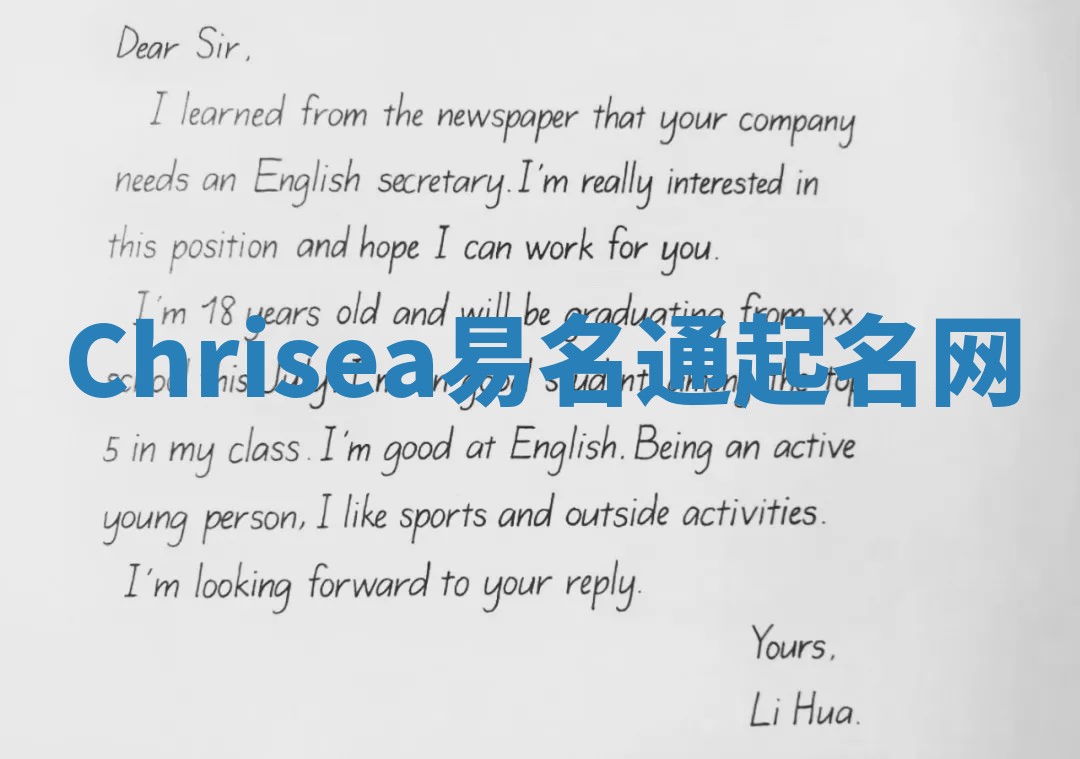 Dear Sir,
I learned from the newspaper that your company
needs an English secretary. I'm really interested in
this position and hope I can work for you.
I'm 18 years old and will be graduating from xx
Chrisea易名通起名网
school this July. I'm a good student among the top
5 in my class. I'm good at English. Being an active
young person, I like sports and outside activities.
I'm looking forward to your reply.
Yours,
Li Hua.